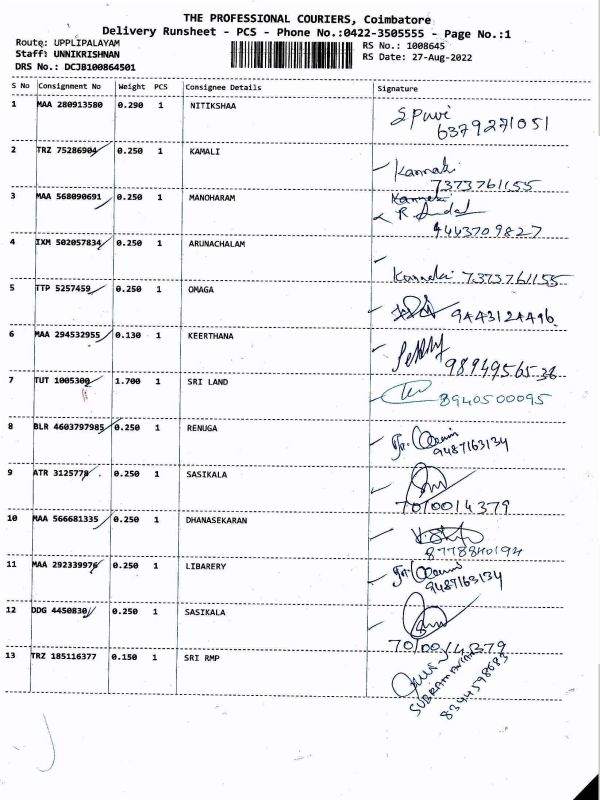 THE PROFESSIONAL COURIERS, Coimbatore
Delivery Runsheet - PCS - Phone No.:0422-3505555 - Page No.:1
Route: UPPLIPALAYAM
Staff: UNNIKRISHNAN
DRS No.: DCJB100864501
RS No.: 1008645
RS Date: 27-Aug-2022
S No Consignment No Weight PCS Consignee Details Signature
1 MAA 280913580 0.290 1 NITIKSHAA
6379271051
2 TRZ 75286904 0.250 1 KAMALI Kannaki
7373761155
3 MAA 568090691 0.250 1 MANOHARAM
9443709827
4 IXM 502057834 0.250 1 ARUNACHALAM
Kannaki 7373761155
5 TTP 5257459 0.250 1 OMAGA
9443124496
6 MAA 294532955 0.130 1 KEERTHANA
9894956536
7 TUT 1005300 1.700 1 SRI LAND
8940500095
8 BLR 4603797985 0.250 1 RENUGA
9487163134
9 ATR 3125778 0.250 1 SASIKALA
7010014379
10 MAA 566681335 0.250 1 DHANASEKARAN
8778840194
11 MAA 292339976 0.250 1 LIBARERY
9487163134
12 DDG 4450830 0.250 1 SASIKALA
7010014379
13 TRZ 185116377 0.150 1 SRI RMP
SUBRAMANIAN
8344598683